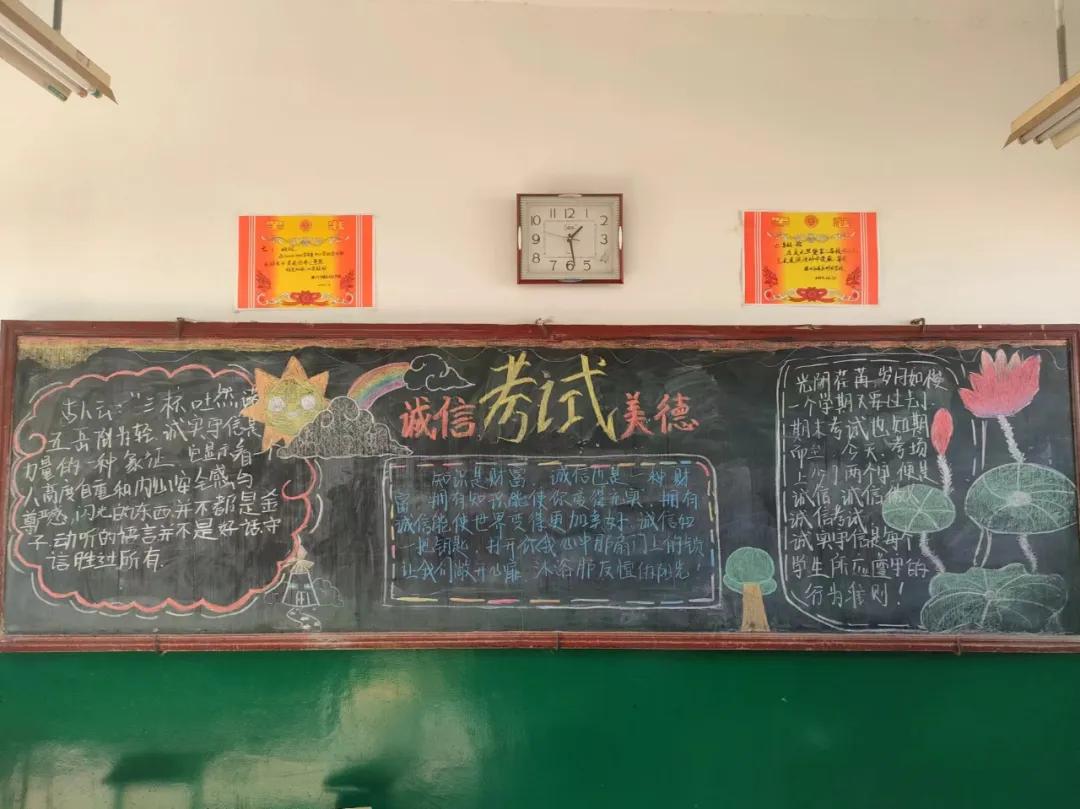 12
11
1
10
2
9
3
8
4
7
5
6
诚信考试美德
古人云:"三杯吐然诺
五岳倒为轻"诚实守信是
力量的一种象征,它显示着
人高度自重和内心安全感与
尊严感,闪光的东西并不都是金
子,动听的语言并不是好话守
信胜过所有.
知识是财富,诚信也是一种财
富,拥有知识能使你变得充实,拥有
诚信能使世界变得更加美好,诚信如
一把钥匙,打开你我心中那扇门上的锁
让我们敞开心扉,沐浴那友谊的阳光!
光阴荏苒,岁月如梭
一个学期又要过去,
期末考试也如期
而至,今天,考场
上,八个字便是
诚信,诚信做人
诚信考试
诚实守信是每个
学生所应遵守的
行为准则!